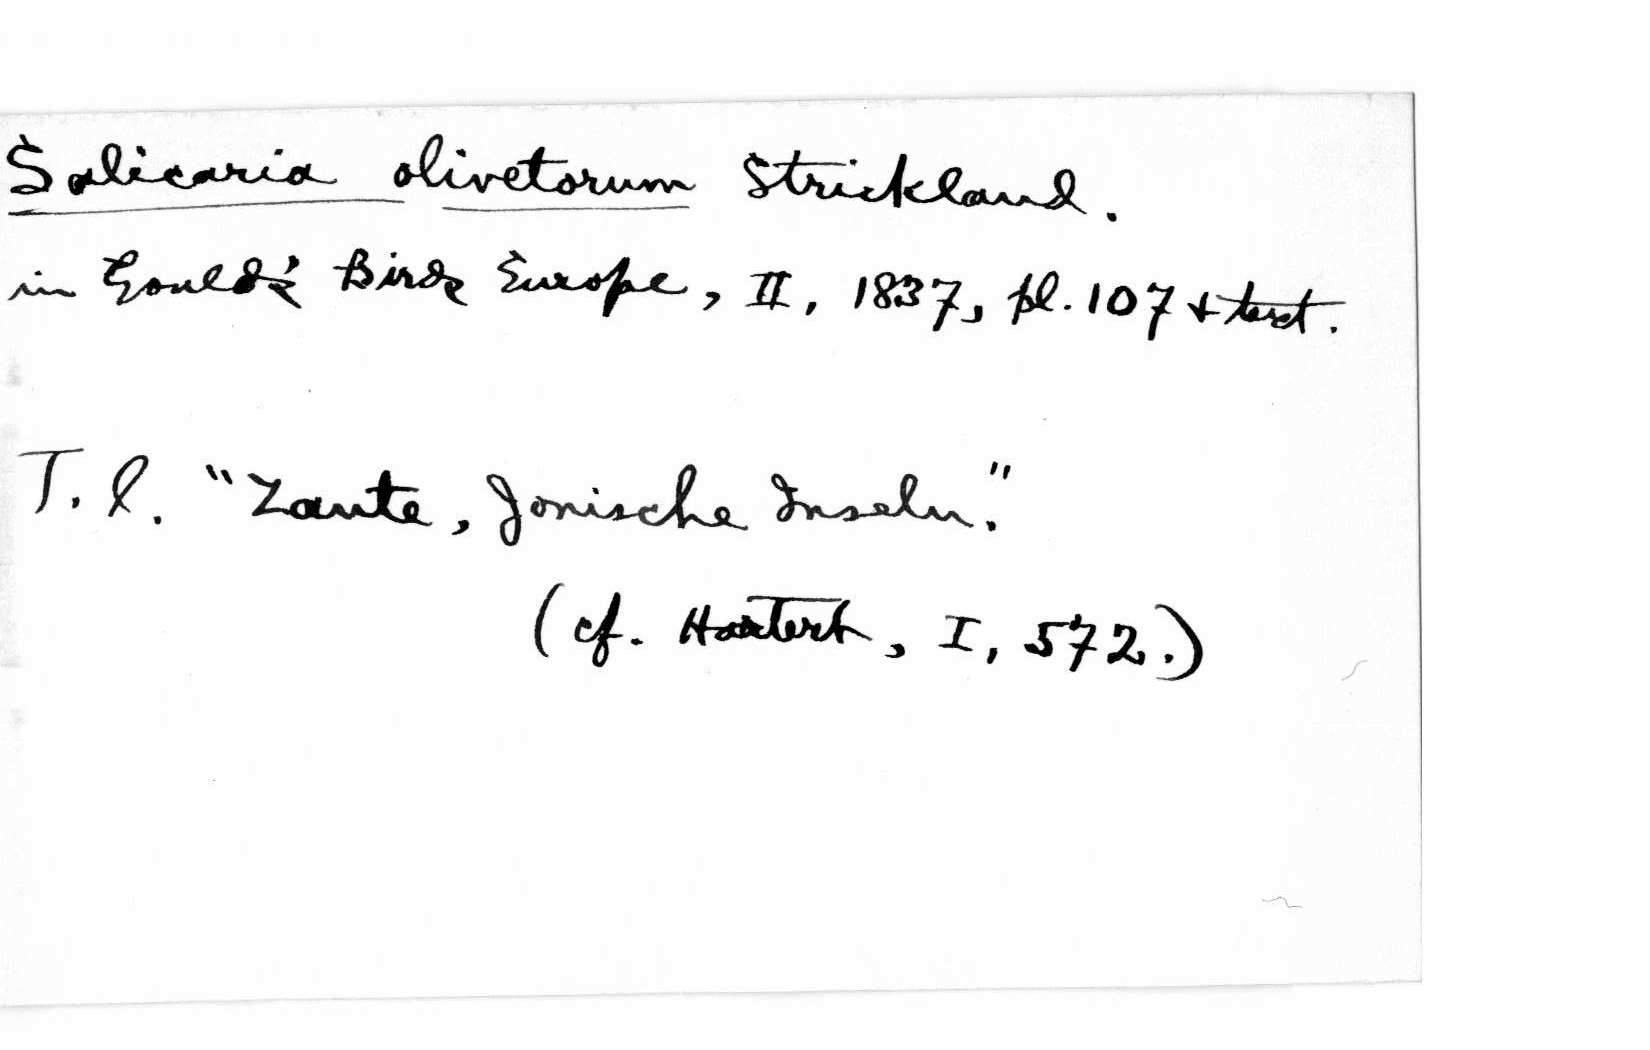 Salicaria olivetorum Strickland.
in Gould's Birds Europe, II, 1837, pl. 107 & text.
T. l. "Zante, Jonische Inseln."
(cf. Hartert, I, 572.)